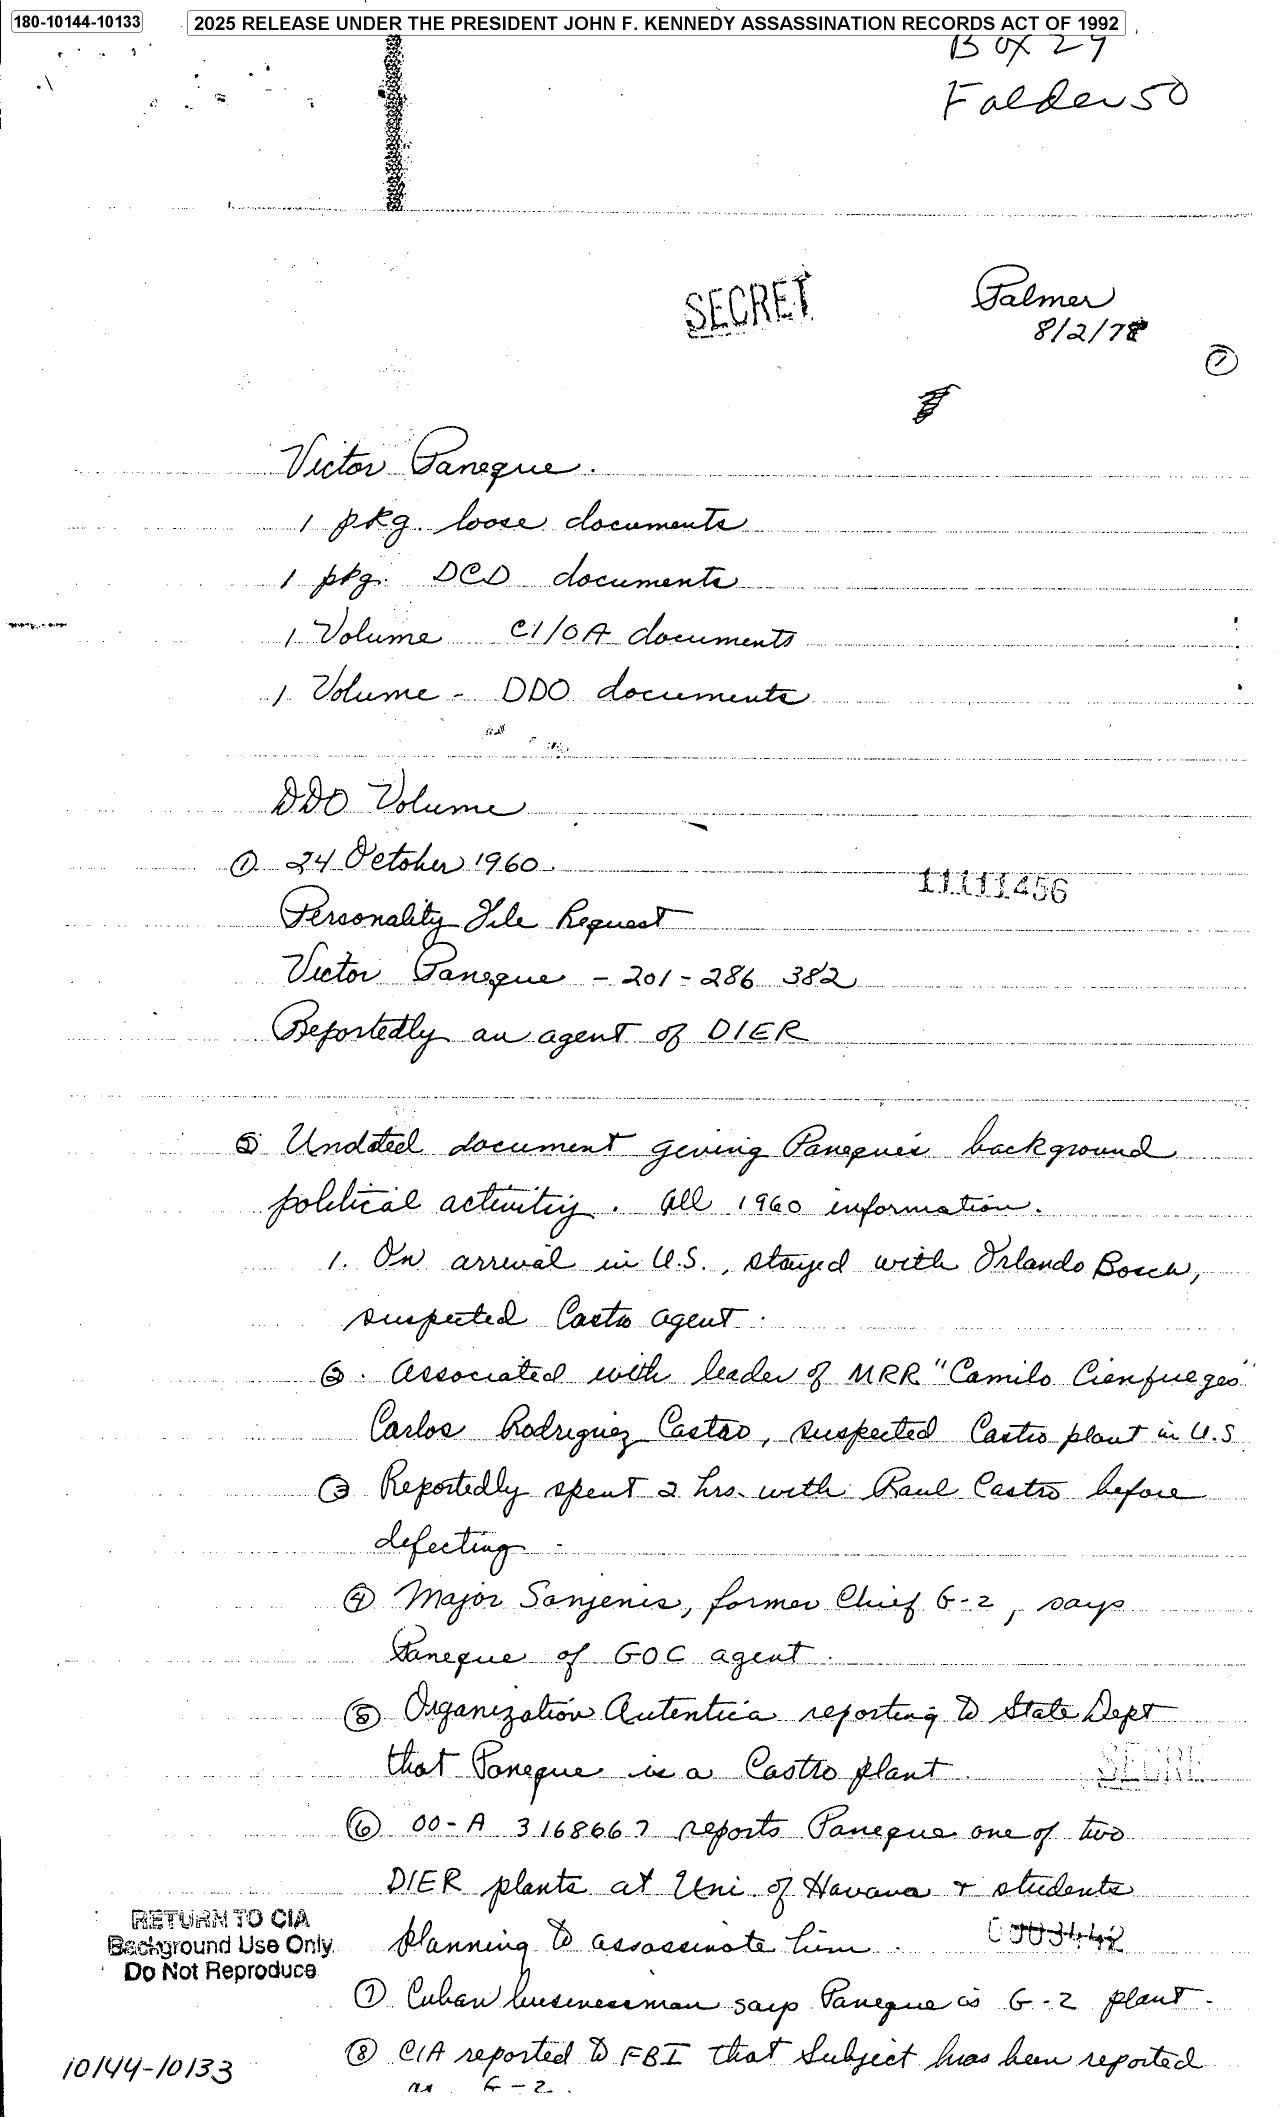 180-10144-10133
2025 RELEASE UNDER THE PRESIDENT JOHN F. KENNEDY ASSASSINATION RECORDS ACT OF 1992
Box 27
Folder 50
SECRET
Palmer
8/2/78
①
Victor Paneque.
1 pkg. loose documents
1 pkg. DCD documents
1 Volume CI/OA documents
1 Volume - DDO documents
DDO Volume
① 24 October 1960
11111456
Personality File Request
Victor Paneque - 201-286 382
Reportedly an agent of DIER
② Undated document giving Paneque's background
political activity. All 1960 information.
1. On arrival in U.S., stayed with Orlando Bosch,
suspected Castro agent.
②. Associated with leader of MRR "Camilo Cienfuegos"
Carlos Rodriguez Castro, suspected Castro plant in U.S
③ Reportedly spent 2 hrs. with Raul Castro before
defecting
④ Major Sanjenis, former Chief G-2, says
Paneque of GOC agent.
⑤ Organization Autentica reporting to State Dept
that Paneque is a Castro plant.
SECRE
⑥ 00-A 3168667 reports Paneque one of two
DIER plants at Uni of Havana + students
planning to assassinate him.
RETURN TO CIA
Background Use Only
Do Not Reproduce
⑦ Cuban businessman says Paneque is G-2 plant.
⑧ CIA reported to FBI that Subject has been reported
as G-2.
10144-10133